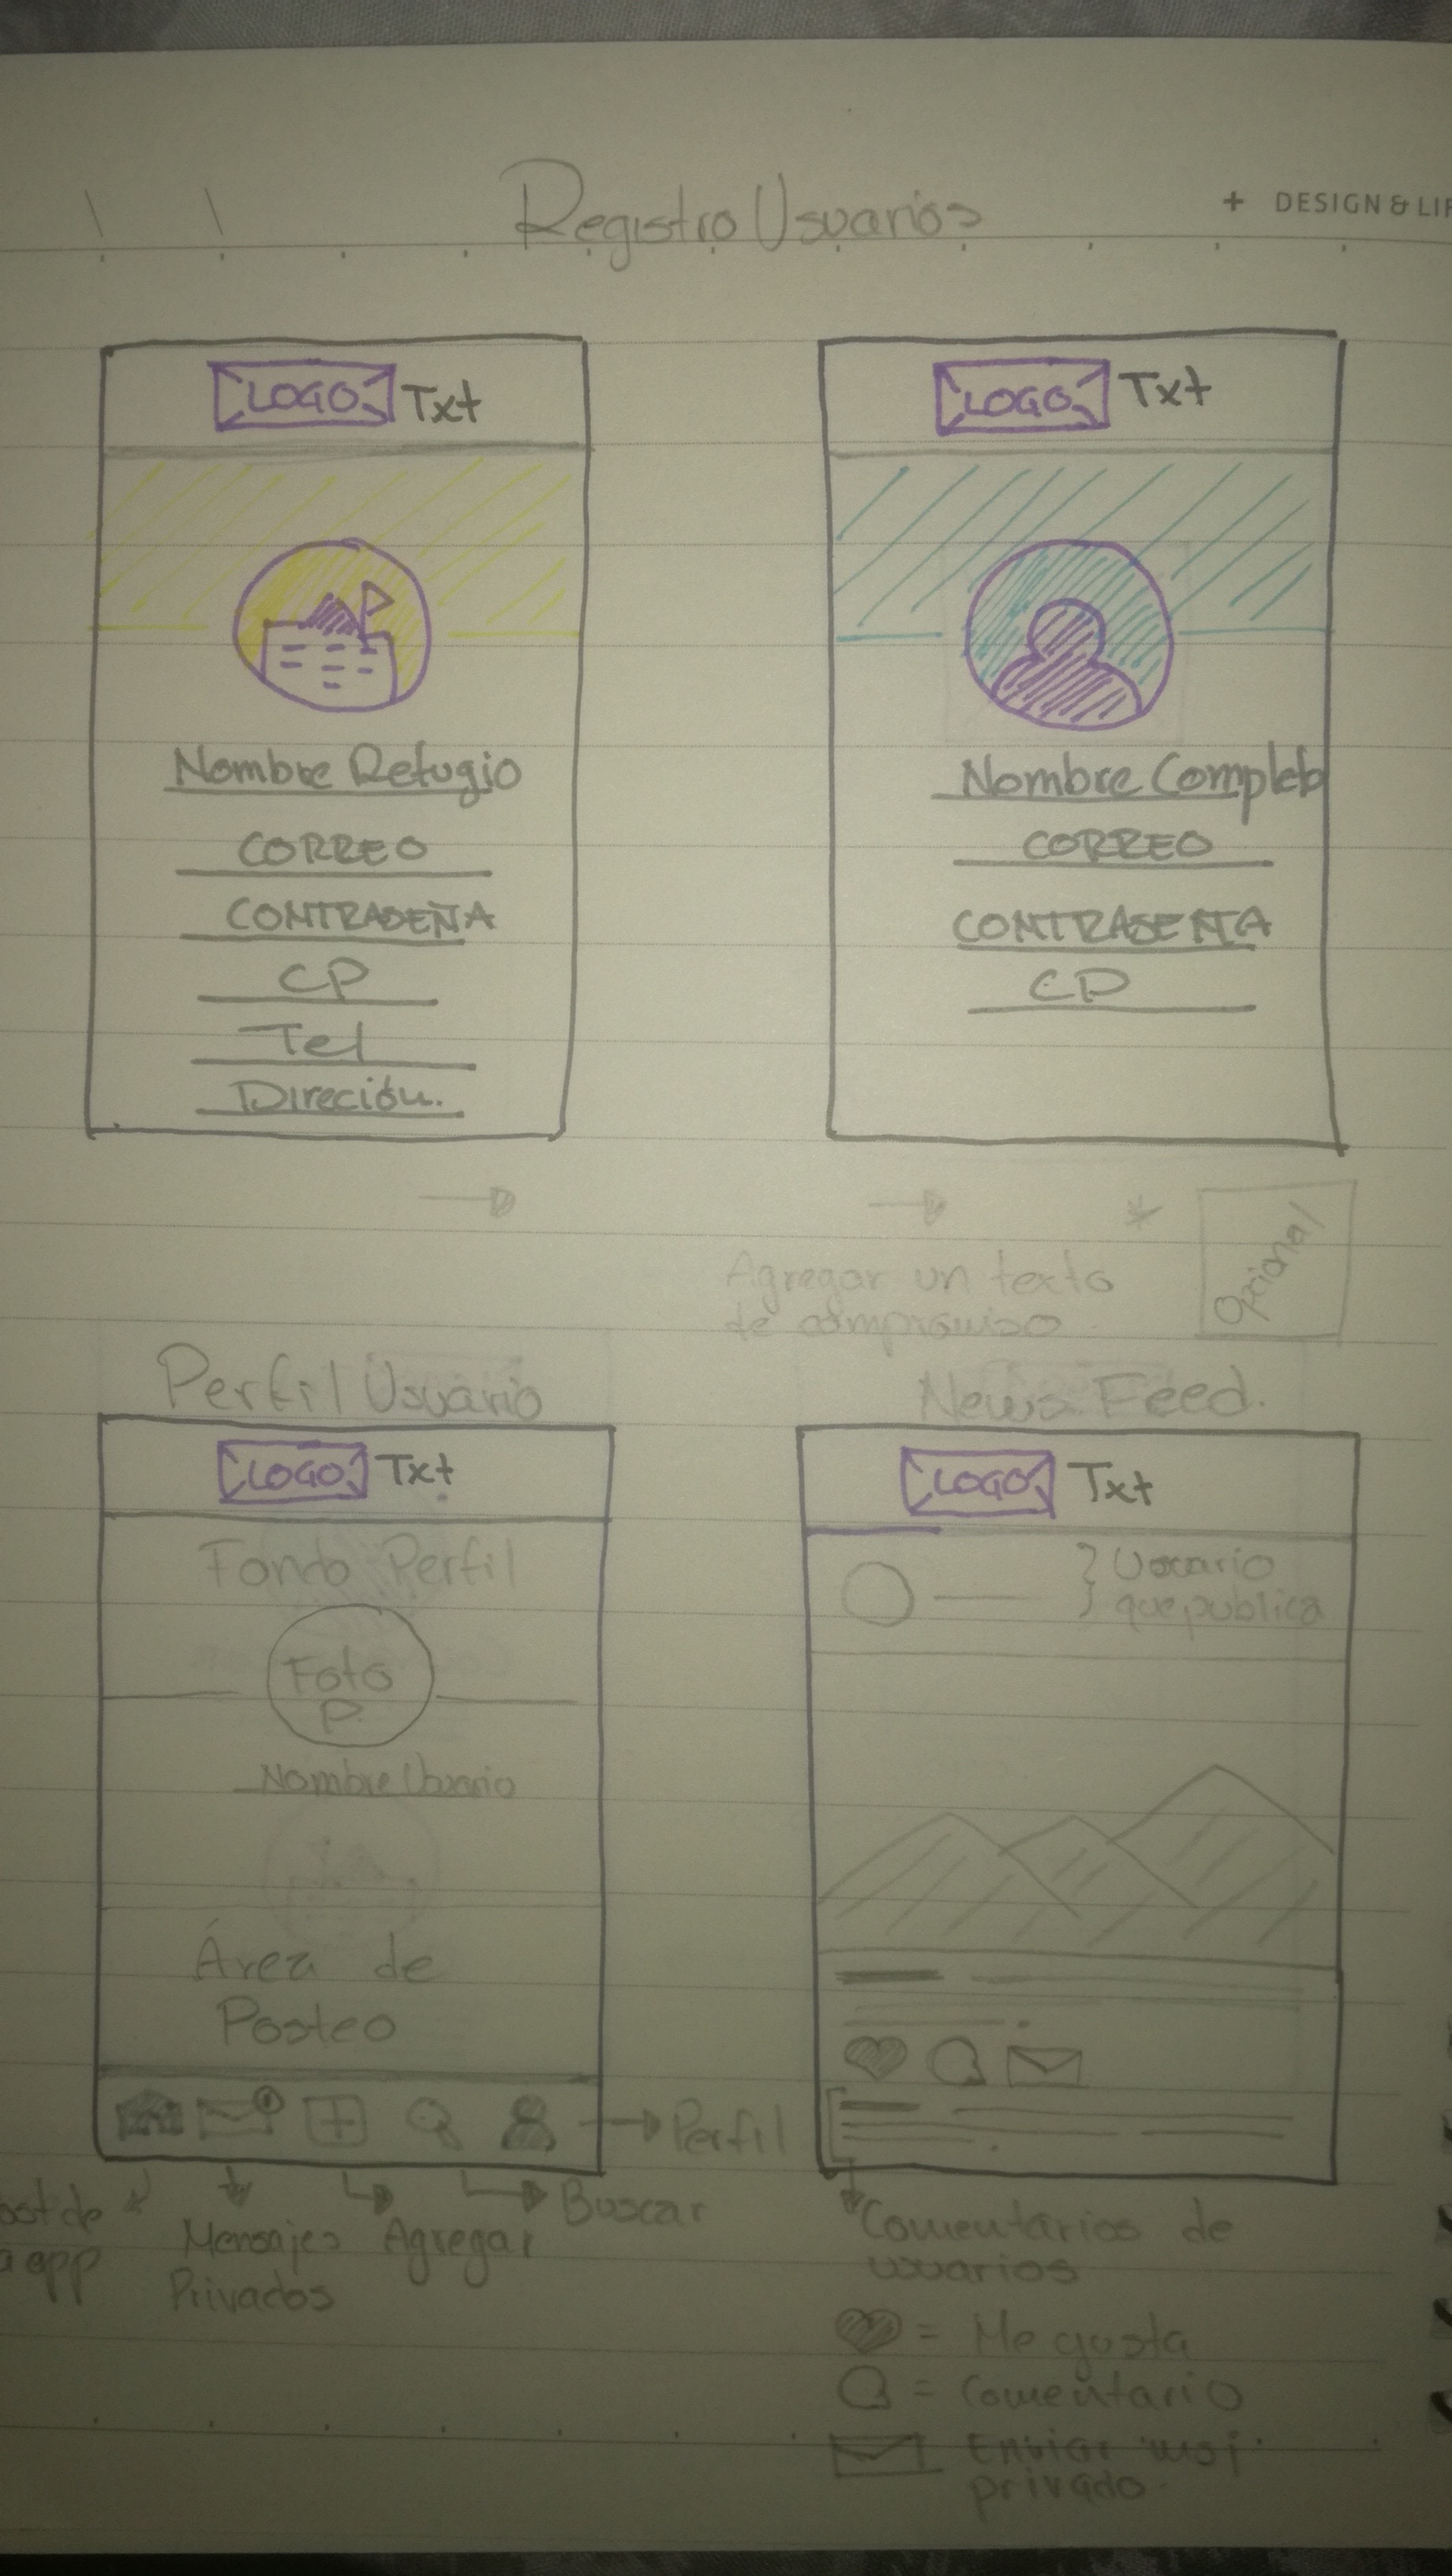 Registro Usuarios
+ DESIGN & LIF
LOGO Txt
Nombre Refugio
CORREO
CONTRASEÑA
CP
Tel
Direción.
LOGO Txt
Nombre Completo
CORREO
CONTRASEÑA
CP
Agregar un texto
de compromiso
* Opcional
Perfil Usuario
LOGO Txt
Fondo Perfil
Foto
P.
Nombre Usuario
Área de
Posteo
Perfil
Buscar
Agregar
Mensajes
Privados
ost de
a app
News Feed.
LOGO Txt
Usuario
que publica
Comentarios de
usuarios
= Me gusta
= Comentario
= Enviar msj
privado